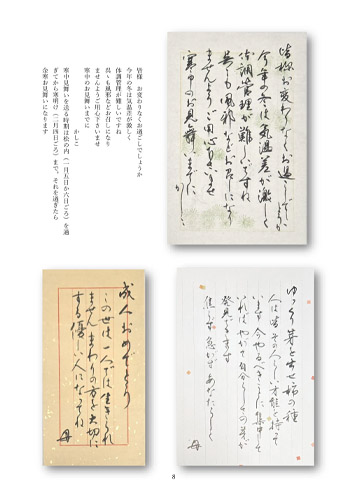 皆様　お変わりなくお過ごしでしょうか
今年の冬は気温差が激しく
体調管理が難しいですね
呉々も風邪などお召しになり
ませんようご用心下さいませ
寒中のお見舞いまでに
かしこ
寒中見舞いを送る時期は松の内（一月五日か六日ごろ）を過
ぎてから寒明け（二月四日ごろ）まで。それを過ぎたら
余寒お見舞いになります
皆様お変わりなくお過ごしでしょうか
今年の冬は気温差が激しく
体調管理が難しいですね
呉々も風邪などお召しになり
ませんようご用心下さいませ
寒中のお見舞いまでに
かしこ
成人おめでとう
この世は一人では生きられ
ませんまわりの方を大切に
する優しい人になってね
母
ゆっくり芽を出せ福の種
人は皆その人らしい才能を持って
います今やるべきことに集中して
いればやがて自分らしさの花が
発見できます
焦らず急がずあなたらしく
母
8